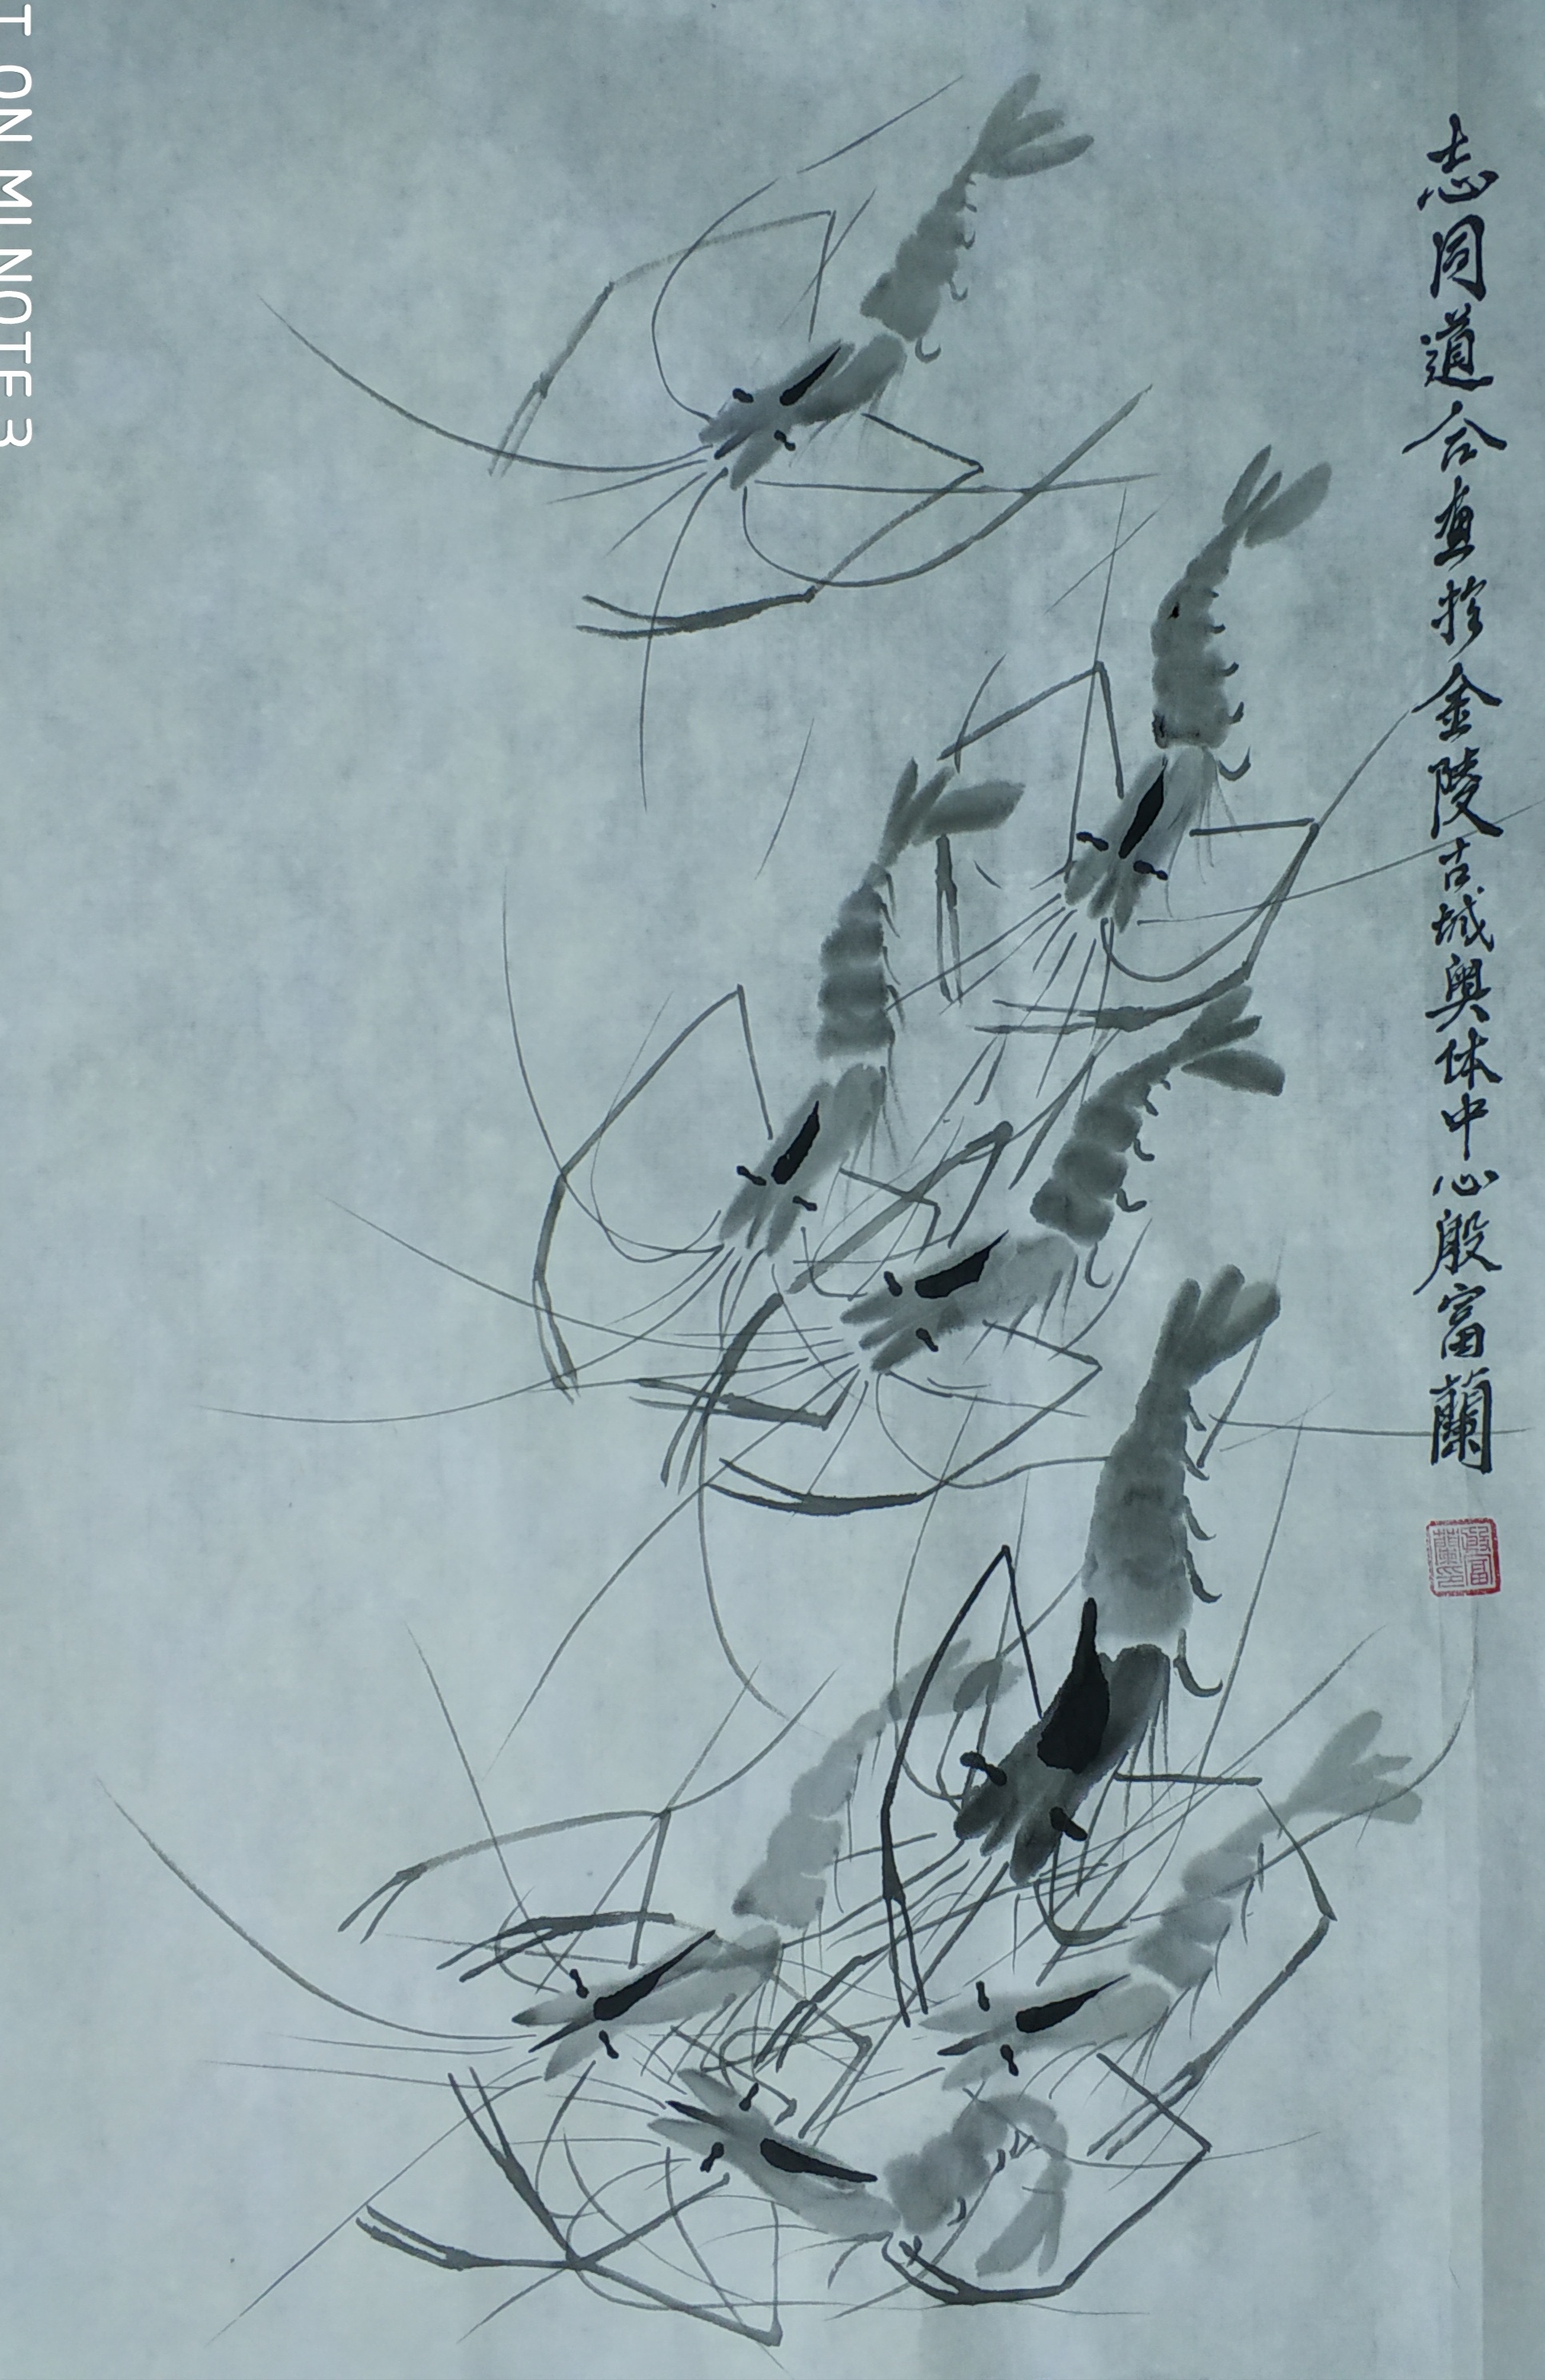 志同道合画於金陵古城奥体中心殷富蘭
殷富蘭印
T ON MI NOTE 3